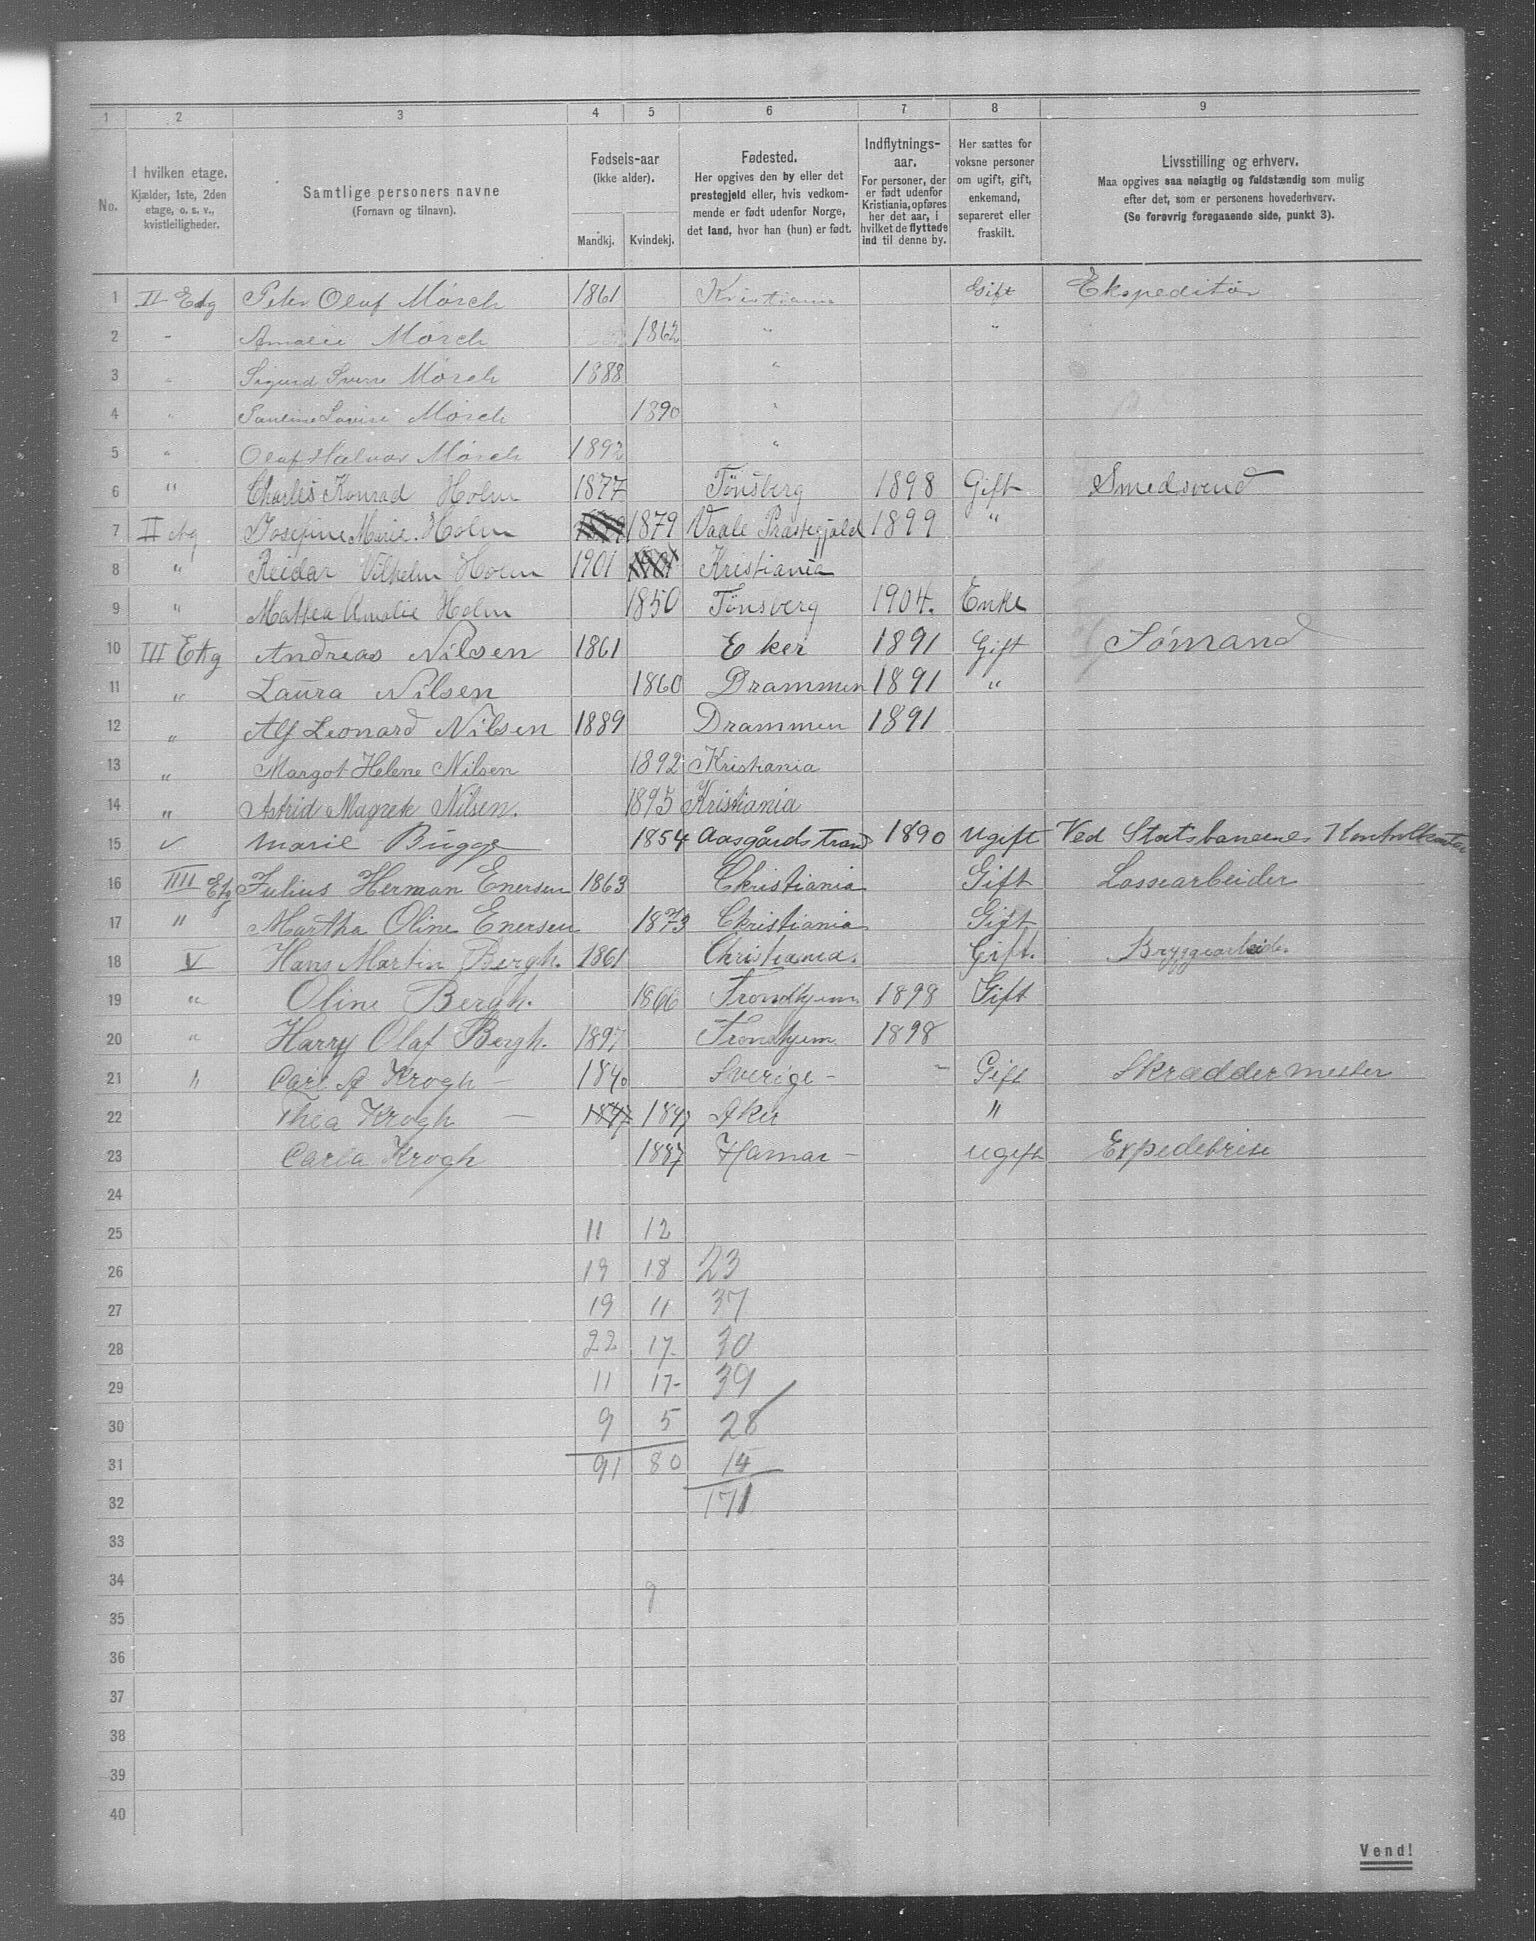 1 2 3 4 5 6 7 8 9
No.
I hvilken etage.
Kjælder, 1ste, 2den
etage, o. s. v.,
kvistleiligheder.
Samtlige personers navne
(Fornavn og tilnavn).
Fødsels-aar
(ikke alder).
Mandkj. Kvindekj.
Fødested.
Her opgives den by eller det
prestegjeld eller, hvis vedkom-
mende er født udenfor Norge,
det land, hvor han (hun) er født.
Indflytnings-
aar.
For personer, der
er født udenfor
Kristiania, opføres
her det aar, i
hvilket de flyttede
ind til denne by.
Her sættes for
voksne personer
om ugift, gift,
enkemand,
separeret eller
fraskilt.
Livsstilling og erhverv.
Maa opgives saa nøiagtig og fuldstændig som mulig
efter det, som er personens hovederhverv.
(Se forøvrig foregaaende side, punkt 3).
1 II Etg Peter Olaf Mørch 1861 Kristiania Gift Ekspeditør
2 - Amalie Mørch 1862 " "
3 " Sigurd Sverre Mørch 1888 "
4 " Pauline Louise Mørch 1890 "
5 " Olaf Halvor Mørch 1892 "
6 " Charles Konrad Holm 1877 Tønsberg 1898 Gift Smedsvend
7 II etg Josefine Marie Holm 1879 Vaale Præstegjæld 1899 "
8 " Reidar Vilhelm Holm 1901 Kristiania
9 " Mathea Amalie Holm 1850 Tønsberg 1904. Enke
10 III Etg Andreas Nilsen 1861 Eker 1891 Gift Sømand
11 " Laura Nilsen 1860 Drammen 1891 "
12 " Alf Leonard Nilsen 1889 Drammen 1891
13 " Margot Helene Nilsen 1892 Kristiania
14 " Astrid Magrete Nilsen. 1895 Kristiania
15 " Marie Bugge 1854 Aasgårdstrand 1890 ugift Ved Statsbanernes Kontrolkontor
16 IIII Etg Julius Herman Enersen 1863 Christiania Gift Lossearbeider
17 " Martha Oline Enersen 1873 Christiania Gift
18 V Hans Martin Bergh. 1861 Christiania. Gift. Bryggearbeider
19 " Oline Bergh. 1866 Trondhjem 1898 Gift
20 " Harry Olaf Bergh. 1897 Trondhjem 1898
21 " Carl A Krogh - 1840 Sverige - - Gift Skræddermester
22 Thea Krogh - 1847 1847 Aker "
23 Carla Krogh 1887 Hamar - ugift Expeditrise
24
25 11 12
26 19 18 23
27 19 11 37
28 22 17 30
29 11 17 39
30 9 5 28
31 91 80 14
32 171
33
34
35 9
36
37
38
39
40
Vend!